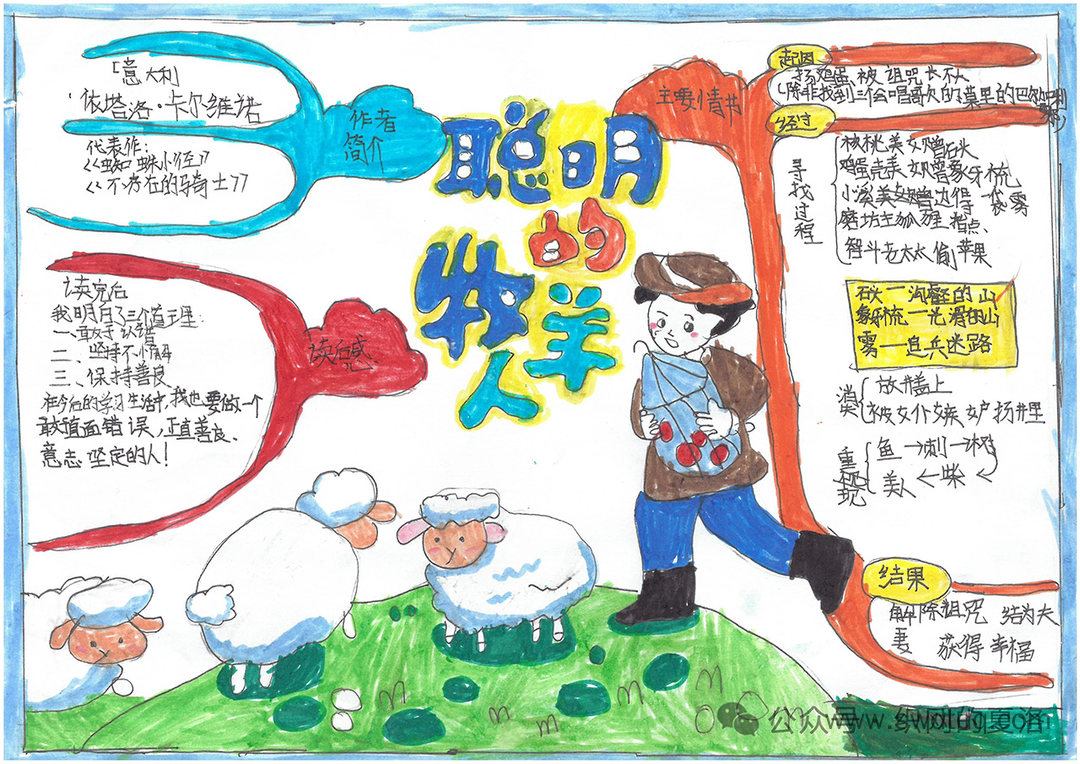 聪明
的
牧羊
人
作者
简介
「意大利
依塔洛·卡尔维诺
代表作:
《蜘蛛小径》
《不存在的骑士》
读后感
读完后
我明白了三个道理:
一、敢于认错
二、坚持不懈
三、保持善良
在今后的学习生活中,我也要做一个
敢直面错误,正直善良、
意志坚定的人!
主要情节
起因
扔鸡蛋,被诅咒长不大
(除非找到三个会唱歌的
经过
寻找过程
核桃美女赠石头
鸡蛋壳美女赠象牙梳
小溪美女赠边得一袋雾
磨坊主 指点、
老太太偷苹果
石头一沟壑的山
象牙梳一光滑的山
雾一追兵迷路
消
放井盖上
被女仆嫉妒扔井里
重现
鱼→刺→树
美人←柴
结果
解除诅咒 结为夫
妻 获得幸福
公众号